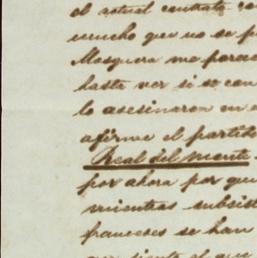 el actual contrato con
mucho que no se p
Mosquera me parece
hasta ver si se con
lo asesinaron en
afirme el partido
Real del monte
por ahora por que
mientras subsist
franceses se han
que siente el que